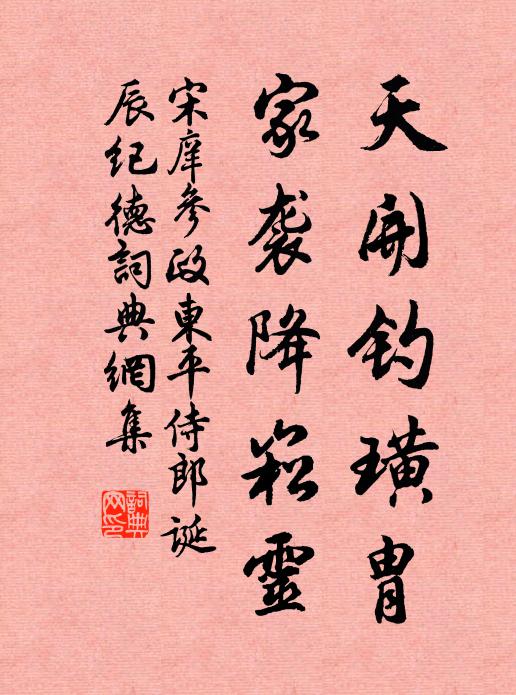 天開釣璜胄
家袭降崧靈
宋庠參政東平侍郎誕
辰紀德詞典網集
詞典
网印